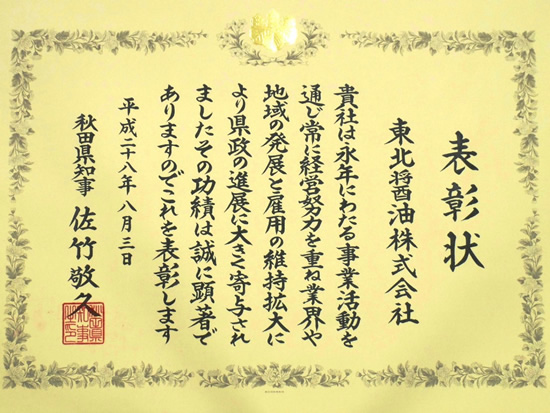 表彰状
東北醤油株式会社
貴社は永年にわたる事業活動を
通じ常に経営努力を重ね業界や
地域の発展と雇用の維持拡大に
より県政の進展に大きく寄与され
ましたその功績は誠に顕著で
ありますのでこれを表彰します
平成二十八年八月三日
秋田県知事 佐竹敬久